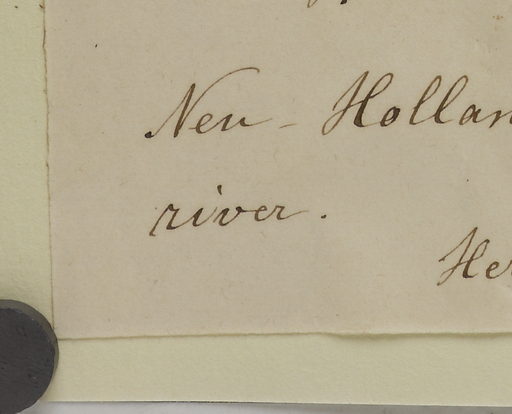 Neu-Hollan
river.
Her